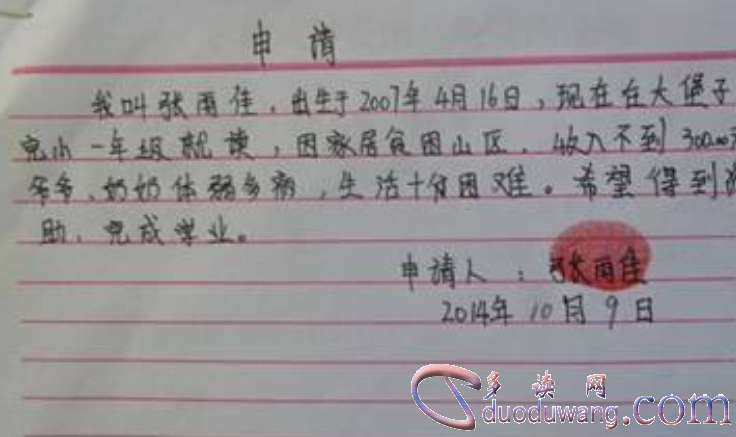 申请
我叫张雨佳，出生于2007年4月16日，现在在大堡子
完小一年级就读，因家居贫困山区，收入不到300.00元
爷爷、奶奶体弱多病，生活十分困难。希望得到
助，完成学业。
申请人：张雨佳
2014年10月9日
多读网
duoduwang.com